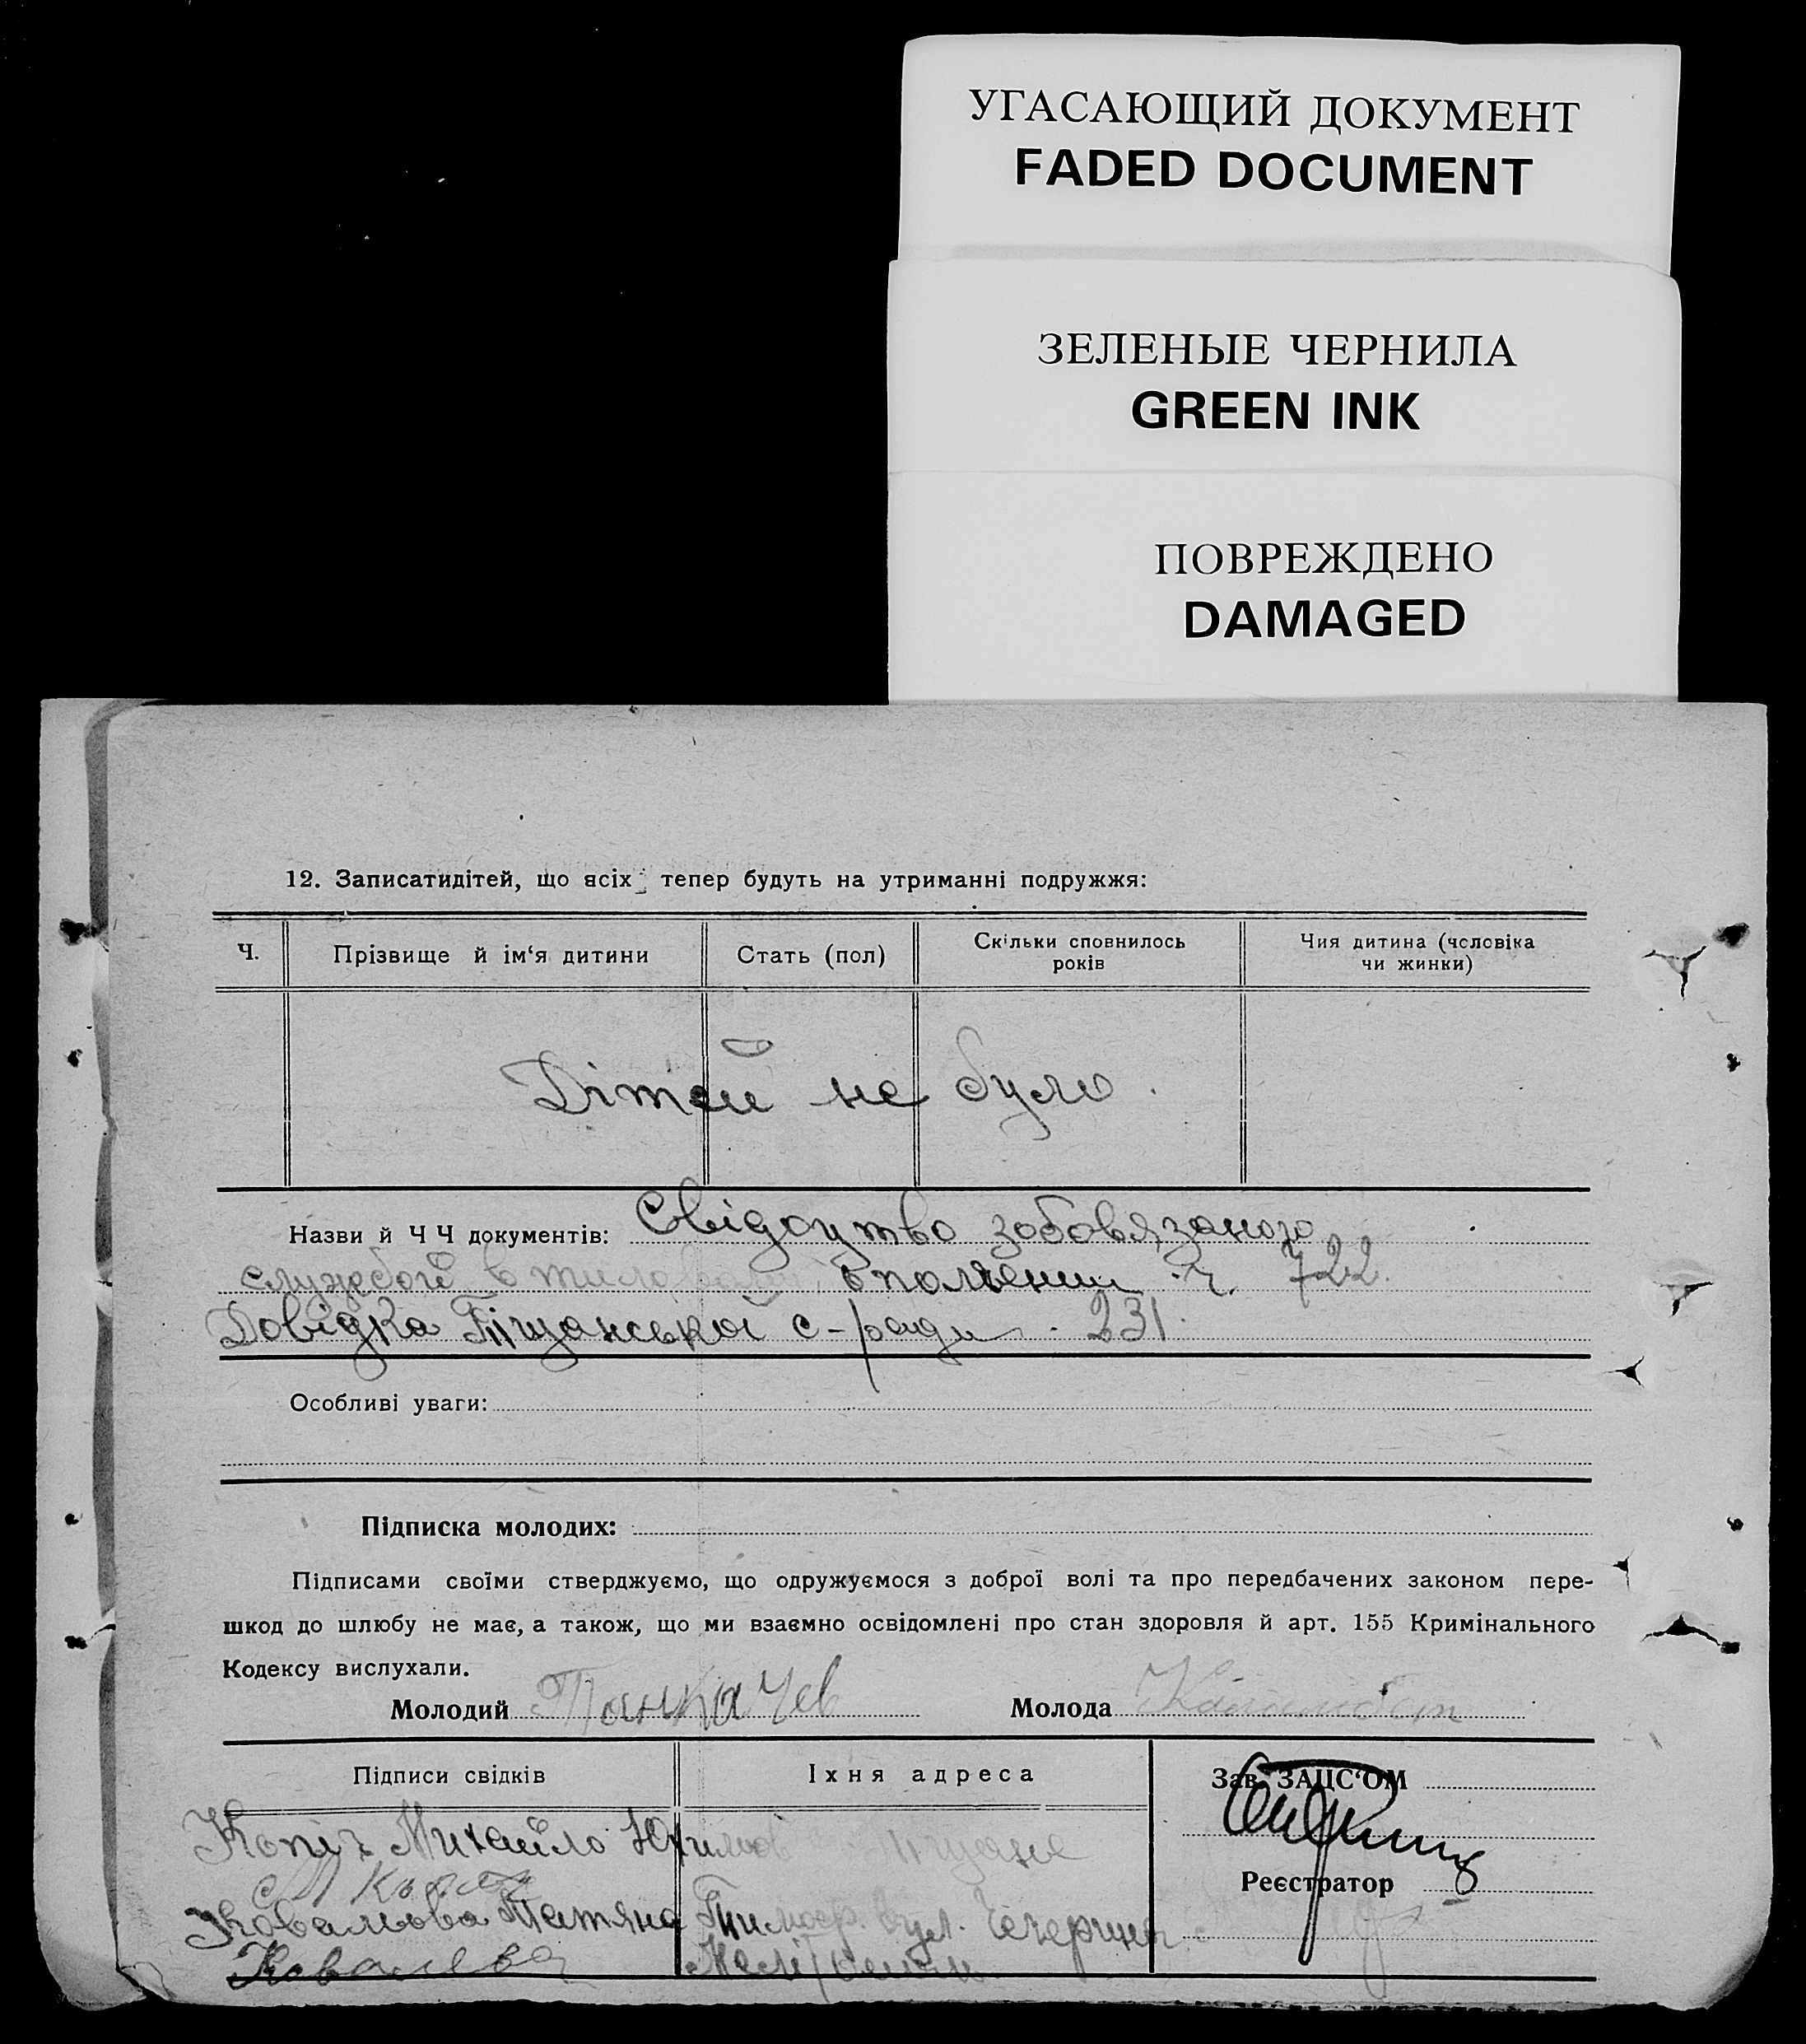 УГАСАЮЩИЙ ДОКУМЕНТ
FADED DOCUMENT
ЗЕЛЕНЫЕ ЧЕРНИЛА
GREEN INK
ПОВРЕЖДЕНО
DAMAGED
12. Записатидітей, що всіх тепер будуть на утриманні подружжя:
Ч. Прізвище й ім‘я дитини Стать (пол) Скільки сповнилось років Чия дитина (чоловіка чи жинки)
Дітей не було.
Назви й Ч Ч документів: Свідоцтво зобовязаного
службой в ополчении ч. 722.
Довідка Піщанської с-ради 231.
Особливі уваги:
Підписка молодих:
Підписами своїми стверджуємо, що одружуємося з доброї волі та про передбачених законом пере-
шкод до шлюбу не має, а також, що ми взаємно освідомлені про стан здоровля й арт. 155 Кримінального
Кодексу вислухали.
Молодий Молода
Підписи свідків Їхня адреса Зав. ЗАЦС‘ОМ
Михайло
Реєстратор
Ковальова Татяна вул.
Ковалева